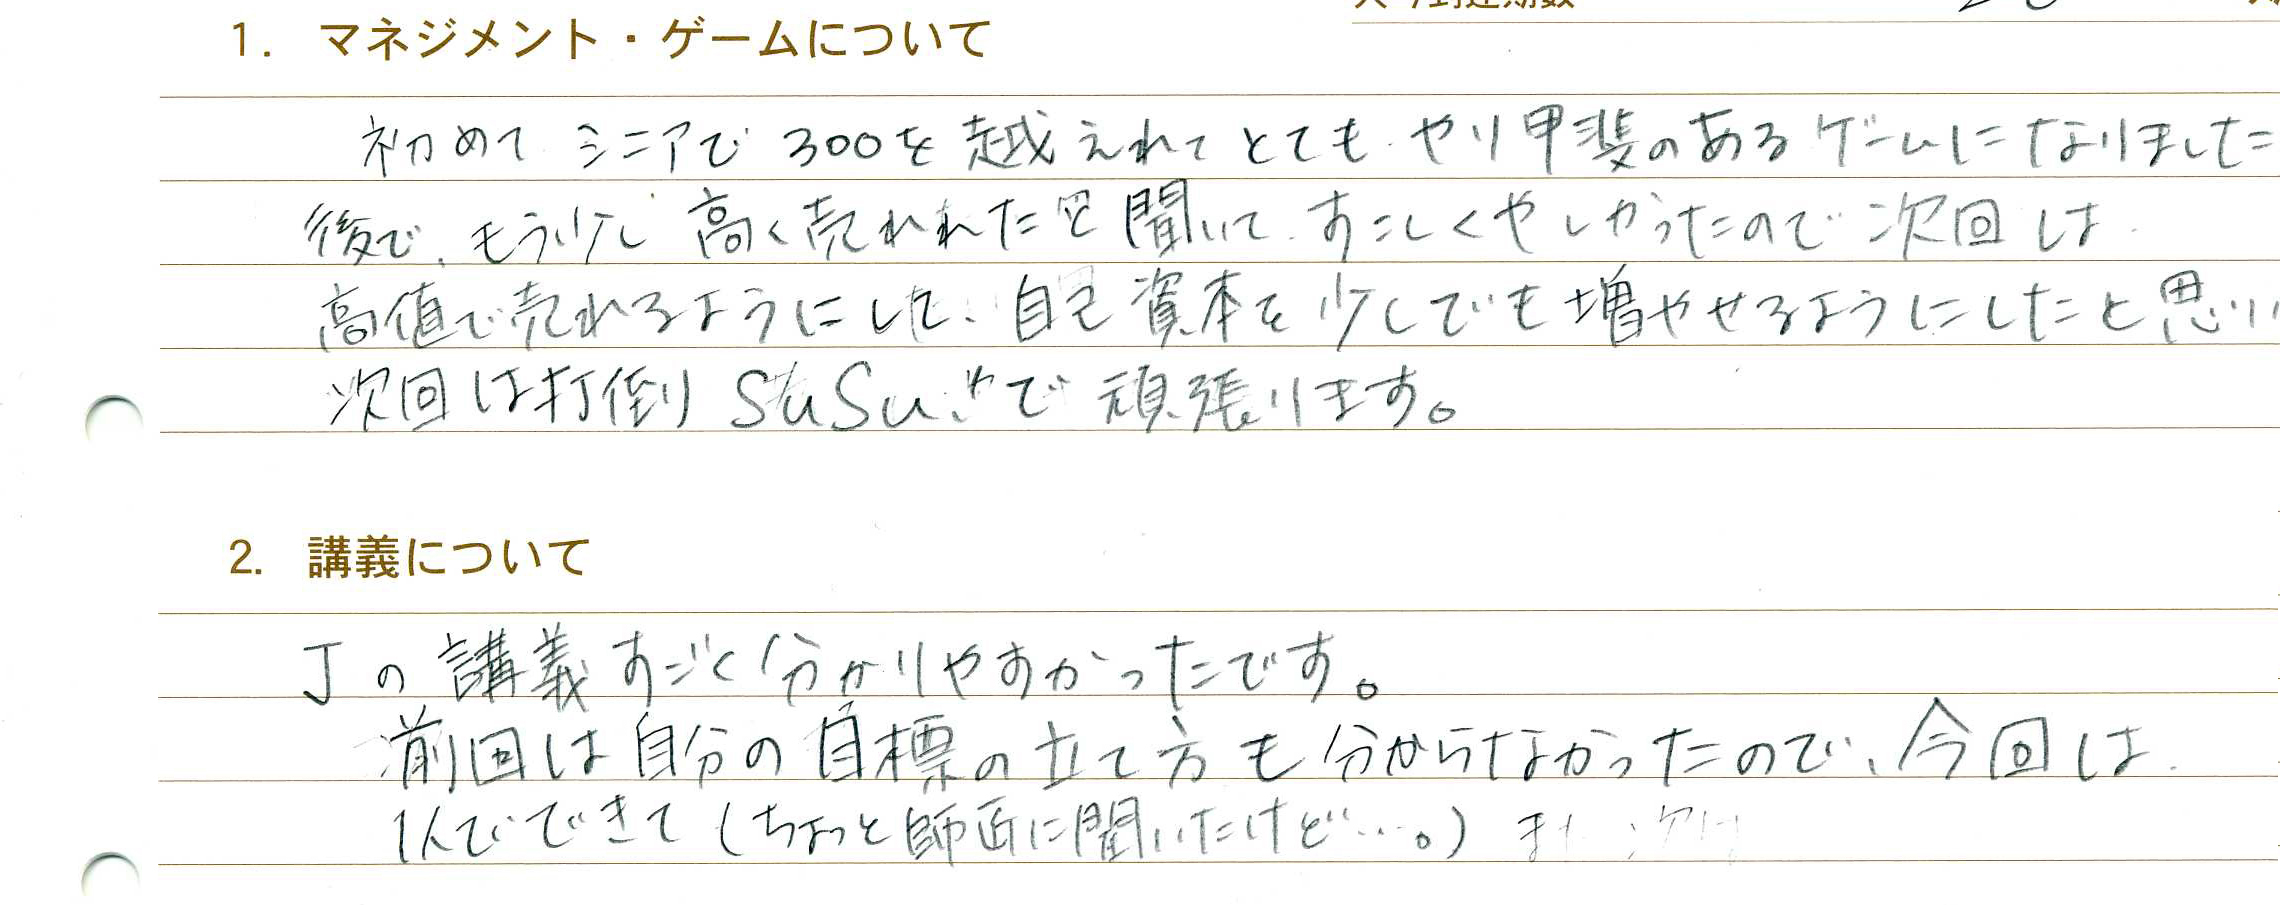 1. マネジメント・ゲームについて
初めてシニアで300を越えれてとてもやり甲斐のあるゲームになりました
後で、もう少し高く売れれたと聞いて、すこしくやしかったので次回は
高値で売れるようにして、自己資本を少しでも増やせるようにしたと思い
次回は打倒SuSu!!で頑張ります。
2. 講義について
Jの講義すごく分かりやすかったです。
前回は自分の目標の立て方も分からなかったので、今回は
1人でできて(ちょっと師匠に聞いたけど…。)